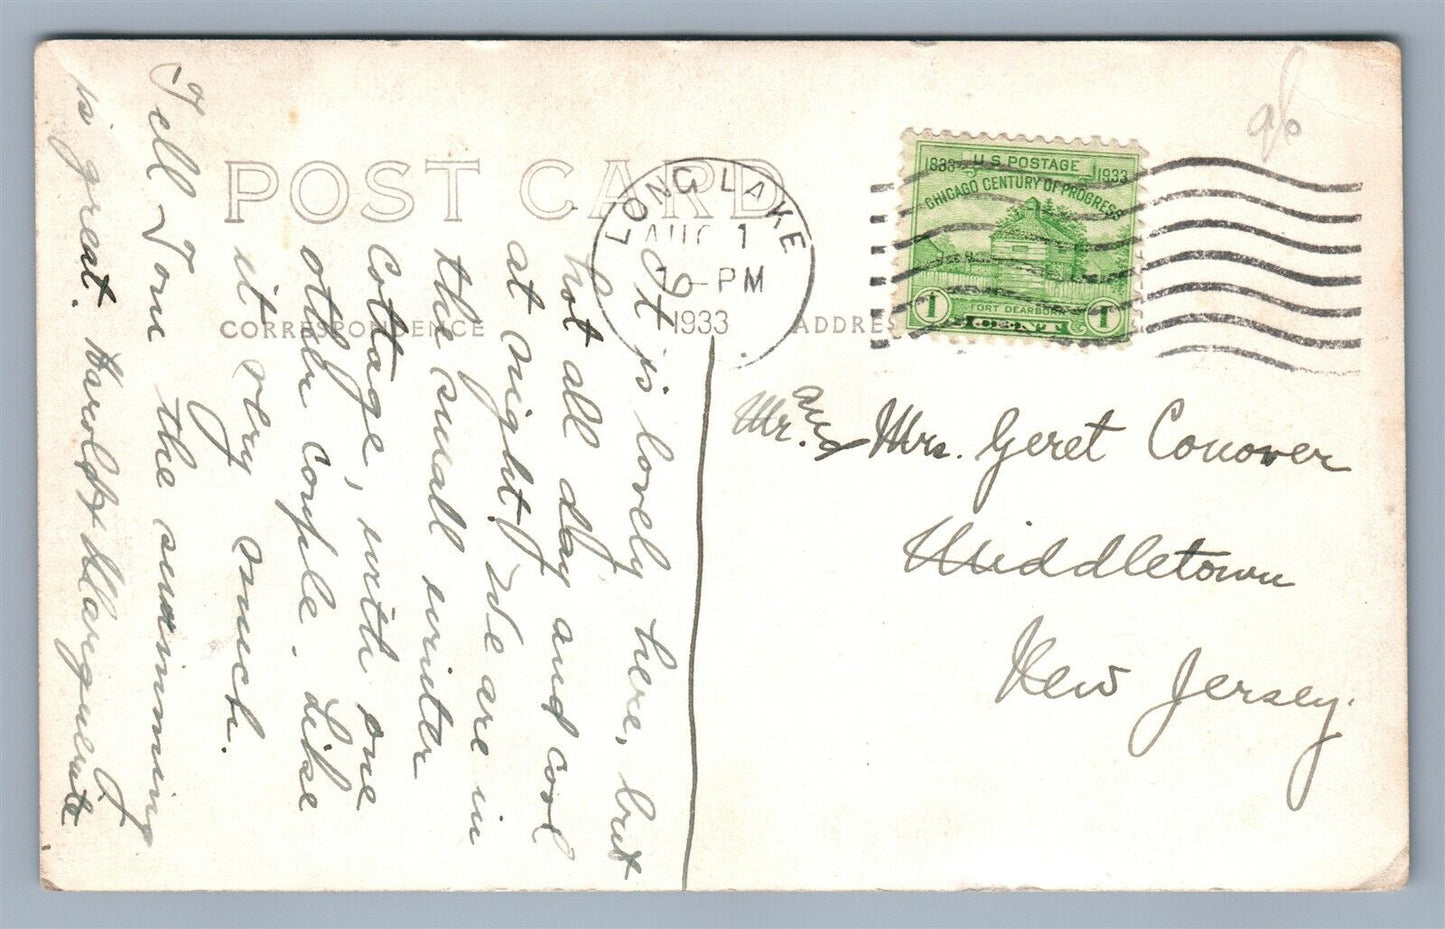 POST CARD
CORRESPONDENCE
ADDRES
LONG LAKE
AUG 1
7-PM
1933
1833 U.S. POSTAGE 1933
CHICAGO CENTURY OF PROGRESS
FORT DEARBORN
1 CENT 1
It is lovely here, but
hot all day and cool
at night. We are in
the small winter
cottage, with one
other couple. Like
it very much.
Tell Tom the swimming
is great. Harold & Marguerite
Mr. and Mrs. Geret Conover
Middletown
New Jersey.